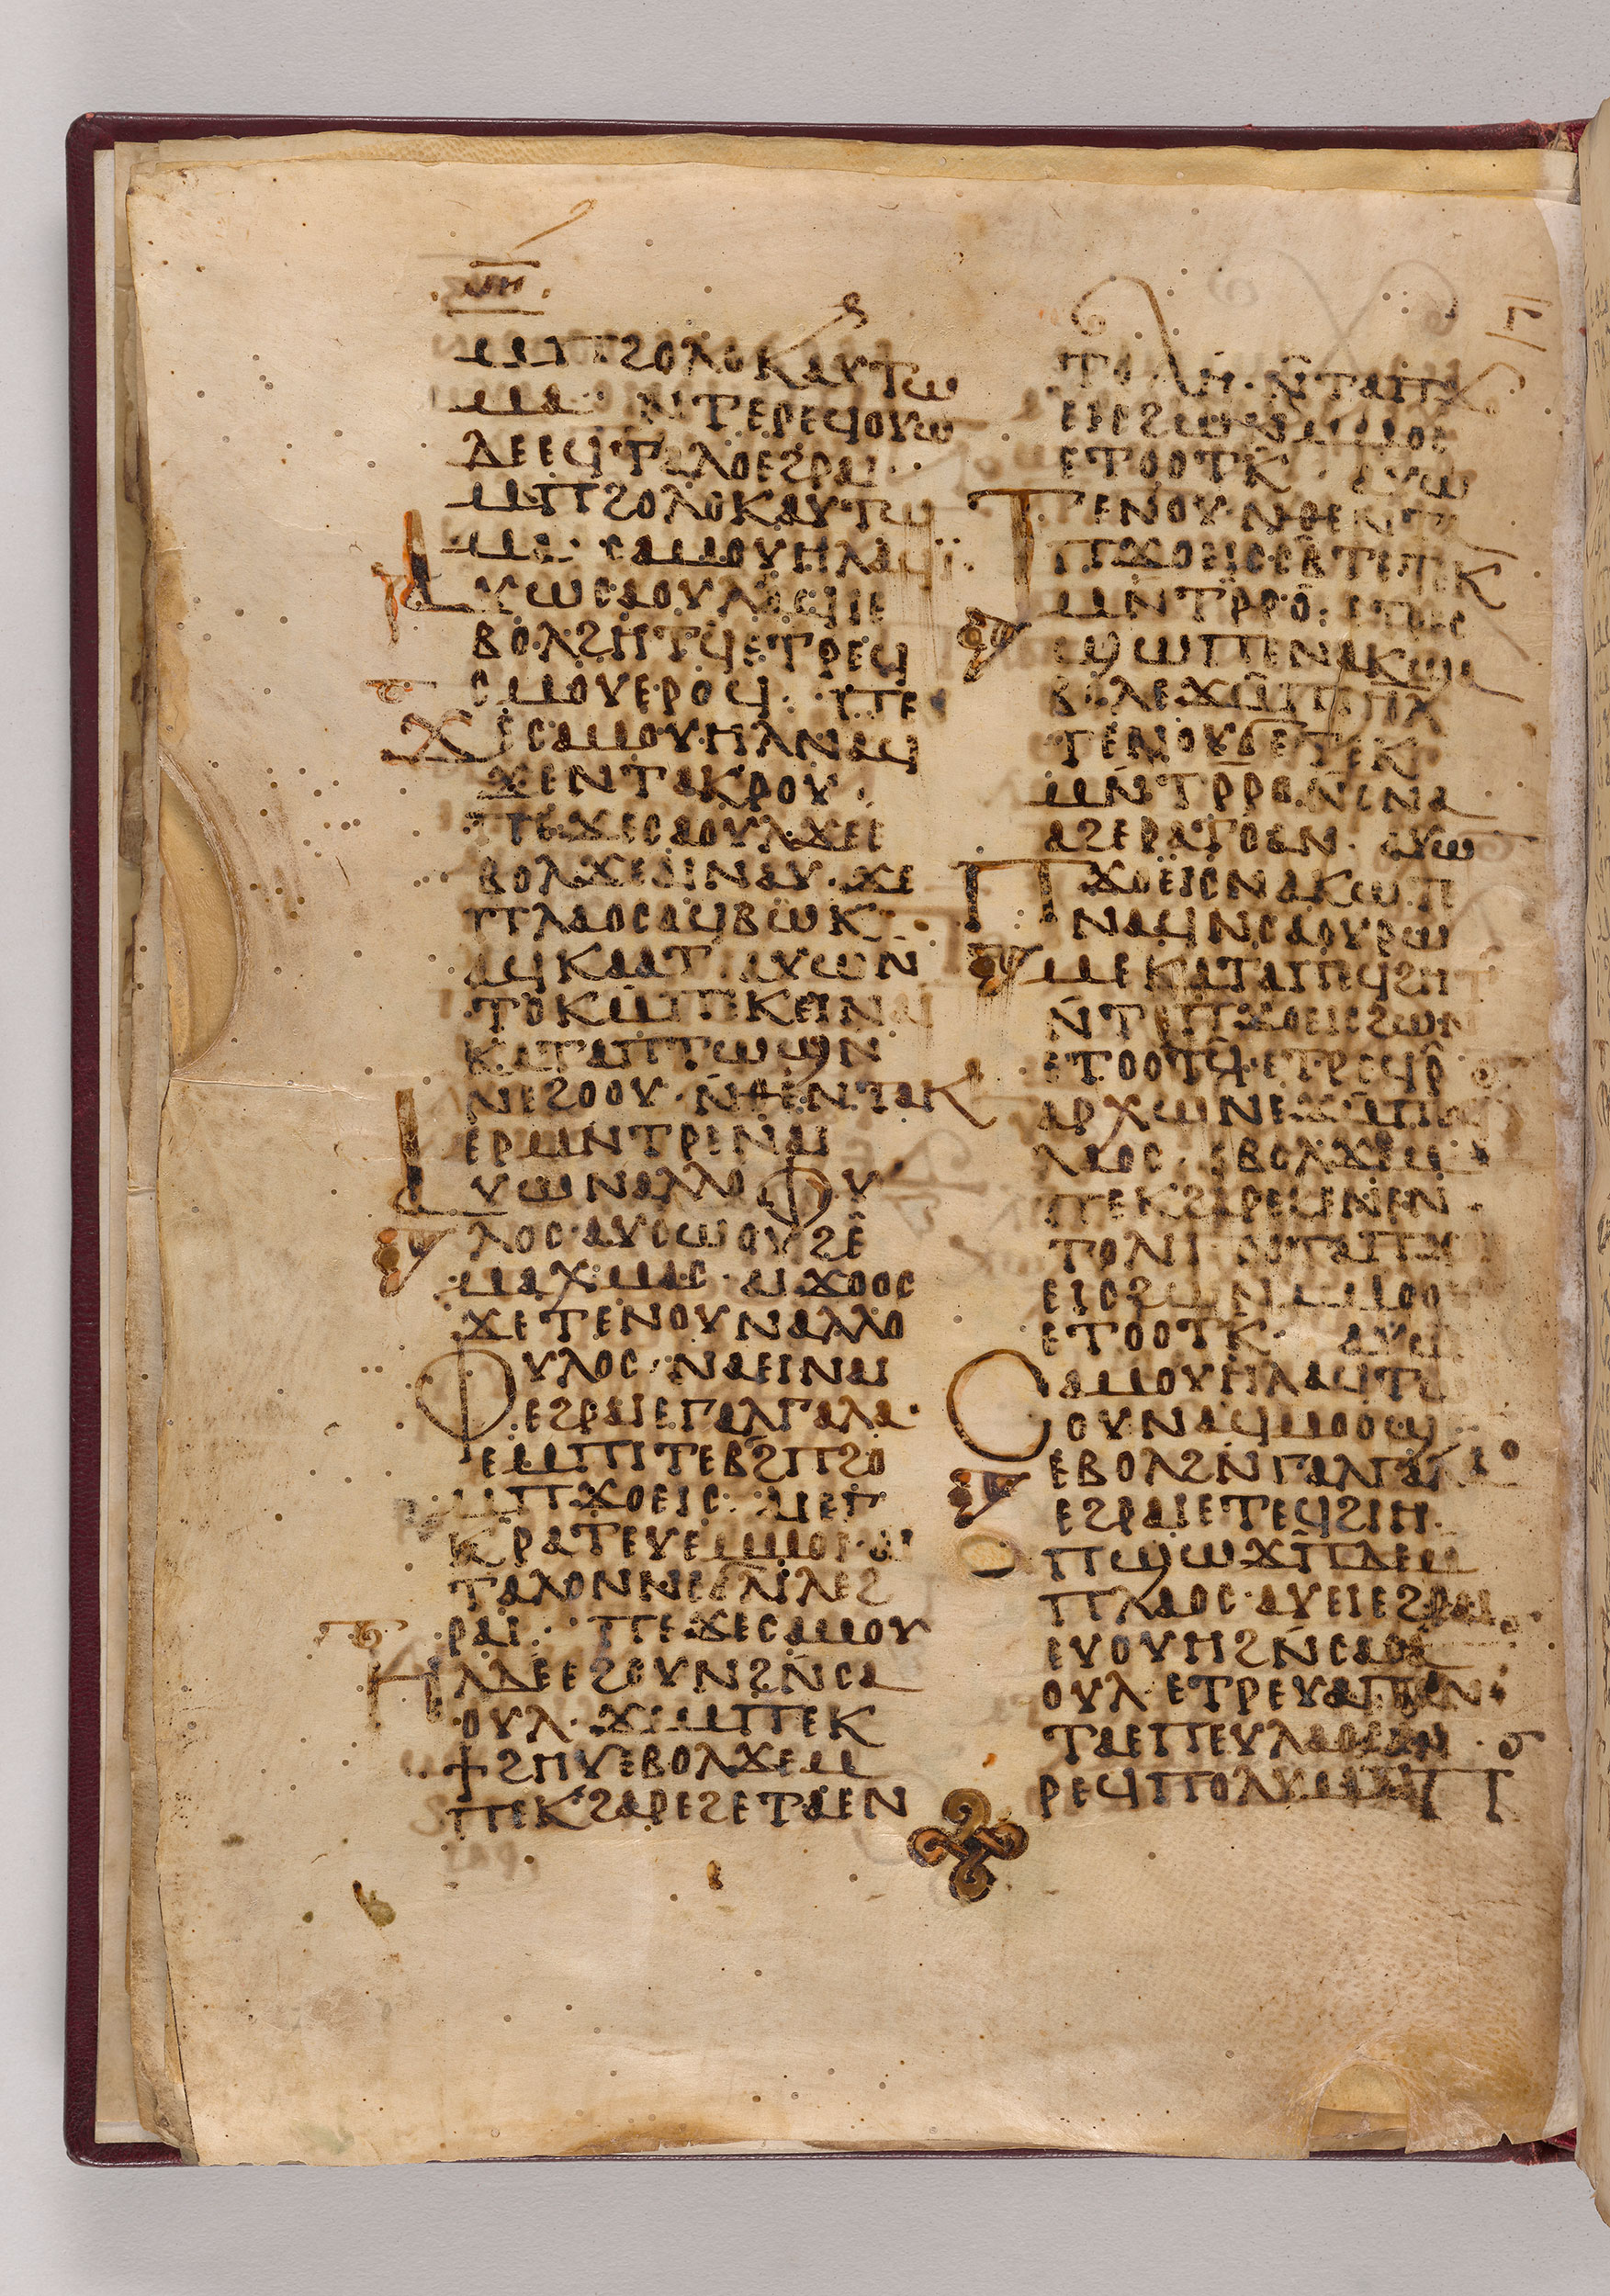 ⲛⲏ
ⲙⲡϩⲟⲗⲟⲕⲁⲩⲧⲱ
ⲙⲁ· ⲛⲧⲉⲣⲉϥⲟⲩⲱ
ⲇⲉⲉϥⲧⲁⲗⲟⲉϩⲣⲁⲓ·
ⲙⲡϩⲟⲗⲟⲕⲁⲩⲧⲱ
ⲙⲁ· ⲥⲁⲙⲟⲩⲏⲗⲁϥⲓ̈·
ⲁⲩⲱⲥⲁⲟⲩⲗⲁϥⲓⲉ
ⲃⲟⲗϩⲏⲧϥⲉⲧⲣⲉϥ
ⲥⲙⲟⲩⲉⲣⲟϥ· ⲡⲉ
ϫⲉⲥⲁⲙⲟⲩⲏⲗⲛⲁϥ
ϫⲉⲛⲧⲁⲕⲣⲟⲩ·
ⲡⲉϫⲉⲥⲁⲟⲩⲗϫⲉⲉ
ⲃⲟⲗϫⲉⲁⲓⲛⲁⲩ·ϫⲉ
ⲡⲗⲁⲟⲥⲁϥⲃⲱⲕ
ⲁϥⲕⲁⲁⲧ· ⲁⲩⲱⲛ̄
ⲧⲟⲕⲙ̄ⲡⲉⲕⲉⲓⲛⲁⲓ
ⲕⲁⲧⲁⲡⲧⲱϣⲛ
ⲛⲉϩⲟⲟⲩ·ⲛ̄ⲑⲉⲛⲧⲁⲕ
ⲉⲣⲙⲛⲧⲣⲉⲛⲁⲓ
ⲁⲩⲱⲛⲁⲗⲗⲟⲫⲩ
ⲗⲟⲥ·ⲁⲩⲥⲱⲟⲩϩⲉ̄
ⲙⲁⲭⲙⲁⲥ· ⲁⲓϫⲟⲟⲥ
ϫⲉⲧⲉⲛⲟⲩⲛⲁⲗⲗⲟ
ⲫⲩⲗⲟⲥ·ⲛⲁⲉⲓⲛⲁⲓ
ⲉϩⲣⲁⲓⲉⲅⲁⲗⲅⲁⲗⲁ·
ⲉⲙⲡⲓⲧⲉⲃϩⲡϩⲟ
ⲙⲡϫⲟⲉⲓⲥ· ⲁⲓⲉⲅ
ⲕⲣⲁⲧⲉⲩⲉⲙⲙⲟⲓ·ⲁⲓ
ⲧⲁⲗⲟⲛⲛⲉϭⲗⲓⲗⲉϩ
ⲣⲁⲓ· ⲡⲉϫⲉⲥⲁⲙⲟⲩ
ⲏⲗⲇⲉⲉϩⲟⲩⲛϩⲛ̄ⲥⲁ
ⲟⲩⲗ·ϫⲉⲙⲡⲉⲕ
ϯϩⲡⲏⲩⲉⲃⲟⲗϫⲉⲙ
ⲡⲉⲕϩⲁⲣⲉϩⲉⲧⲁⲉⲛ
ⲧⲟⲗⲏ·ⲛ̄ⲧⲁⲡϫⲟ
ⲉⲓⲥϩⲱⲛⲙⲙⲟⲥ
ⲉⲧⲟⲟⲧⲕ̄· ⲁⲩⲱ
ⲧⲉⲛⲟⲩ·ⲛⲑⲉⲛⲧⲁ
ⲡϫⲟⲉⲓⲥⲥⲃⲧⲉⲧⲉⲕ
ⲙⲛ̄ⲧⲣ̄ⲣⲟ· ⲉⲧⲣⲉⲥ
ϣⲱⲡⲉⲛⲁⲕϣⲁ
ⲃⲟⲗⲉϫⲙ̄ⲡⲓⲏⲗ
ⲧⲉⲛⲟⲩϭⲉⲧⲉⲕ
ⲙⲛ̄ⲧⲣ̄ⲣⲟ·ⲛ̄ⲥⲛⲁ
ⲁϩⲉⲣⲁⲧⲟⲥⲁⲛ· ⲁⲩⲱ
ⲡϫⲟⲉⲓⲥⲛⲁⲕⲱⲧⲉ
ⲛⲁϥⲛⲥⲁⲟⲩⲣⲱ
ⲙⲉⲕⲁⲧⲁⲡⲉϥϩⲏⲧ
ⲛ̄ⲧⲉⲡϫⲟⲉⲓⲥϩⲱⲛ
ⲉⲧⲟⲟⲧϥ̄·ⲉⲧⲣⲉϥⲣ̄
ⲁⲣⲭⲱⲛⲉϫⲙ̄ⲡⲉϥ
ⲗⲁⲟⲥ· ⲉⲃⲟⲗϫⲉⲙ
ⲡⲉⲕϩⲁⲣⲉϩⲉⲛⲉⲛ
ⲧⲟⲗⲏ ⲛⲧⲁⲡϫⲟ
ⲉⲓⲥϩⲱⲛⲙⲙⲟⲟⲩ
ⲉⲧⲟⲟⲧⲕ̄· ⲁⲩⲱ
ⲥⲁⲙⲟⲩⲏⲗⲁϥⲧⲱ
ⲟⲩⲛⲁϥⲙⲟⲟϣⲉ
ⲉⲃⲟⲗϩⲛ̄ⲅⲁⲗⲅⲁⲗⲁ
ⲉϩⲣⲁⲓⲉⲧⲉϥϩⲓⲏ·
ⲡϣⲱϫⲡ̄ⲇⲉⲙ
ⲡⲗⲁⲟⲥ·ⲁⲩⲉⲓⲉϩⲣⲁⲓ
ⲉⲩⲟⲩⲏϩⲛ̄ⲥⲁⲥⲁ
ⲟⲩⲗ·ⲉⲧⲣⲉⲩⲁⲡⲁⲛ
ⲧⲁⲉⲡⲉⲩⲗⲁⲟⲥⲉⲧ
ⲣⲉϥⲡⲟⲗⲩⲙⲉⲓ